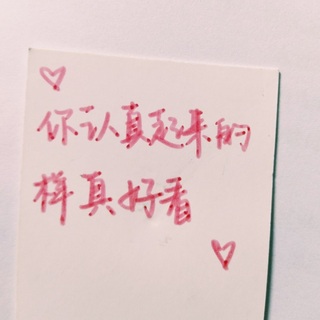 你认真起来的
样真好看